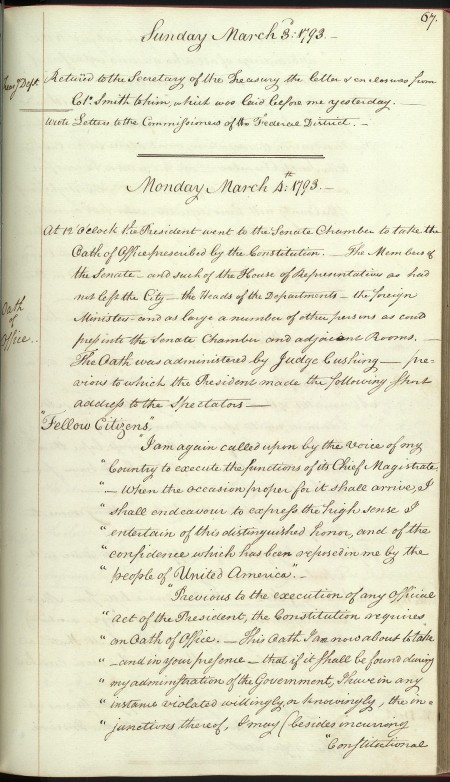 67.
Sunday March 3.d 1793. —
Treas'y Dept.
Returned to the Secretary of the Treasury the letter & enclosures from
Colo. Smith to him, which was laid before me yesterday. —
Wrote Letters to the Commissioners of the Federal District. —
Monday March 4.th 1793. —
At 12 o'clock the President went to the Senate Chamber to take the
Oath of Office prescribed by the Constitution. — The Members of
the Senate — and such of the House of Representatives as had
not left the City — the Heads of the Departments — the foreign
Oath
of
Office.
Minister — and as large a number of other persons as could
press into the Senate Chamber and adjacent Rooms. —
The Oath was administered by Judge Cushing — pre=
vious to which the President made the following short
address to the Spectators —
"Fellow Citizens",
"I am again called upon by the voice of my
"Country to execute the functions of its Chief Magistrate.
"— When the occasion proper for it shall arrive, I
"shall endeavour to express the high sense I
"entertain of this distinguished honor, and of the
"confidence which has been reposed in me by the
"people of United America". —
"Previous to the execution of any Official
"act of the President, the Constitution requires
"an Oath of Office. — This Oath I am now about to take
"— and in your presence — that if it shall be found during
"my administration of the Government, I have in any
"instance violated willingly, or knowingly, the in=
"junctions thereof, I may (besides incurring
"Constitutional